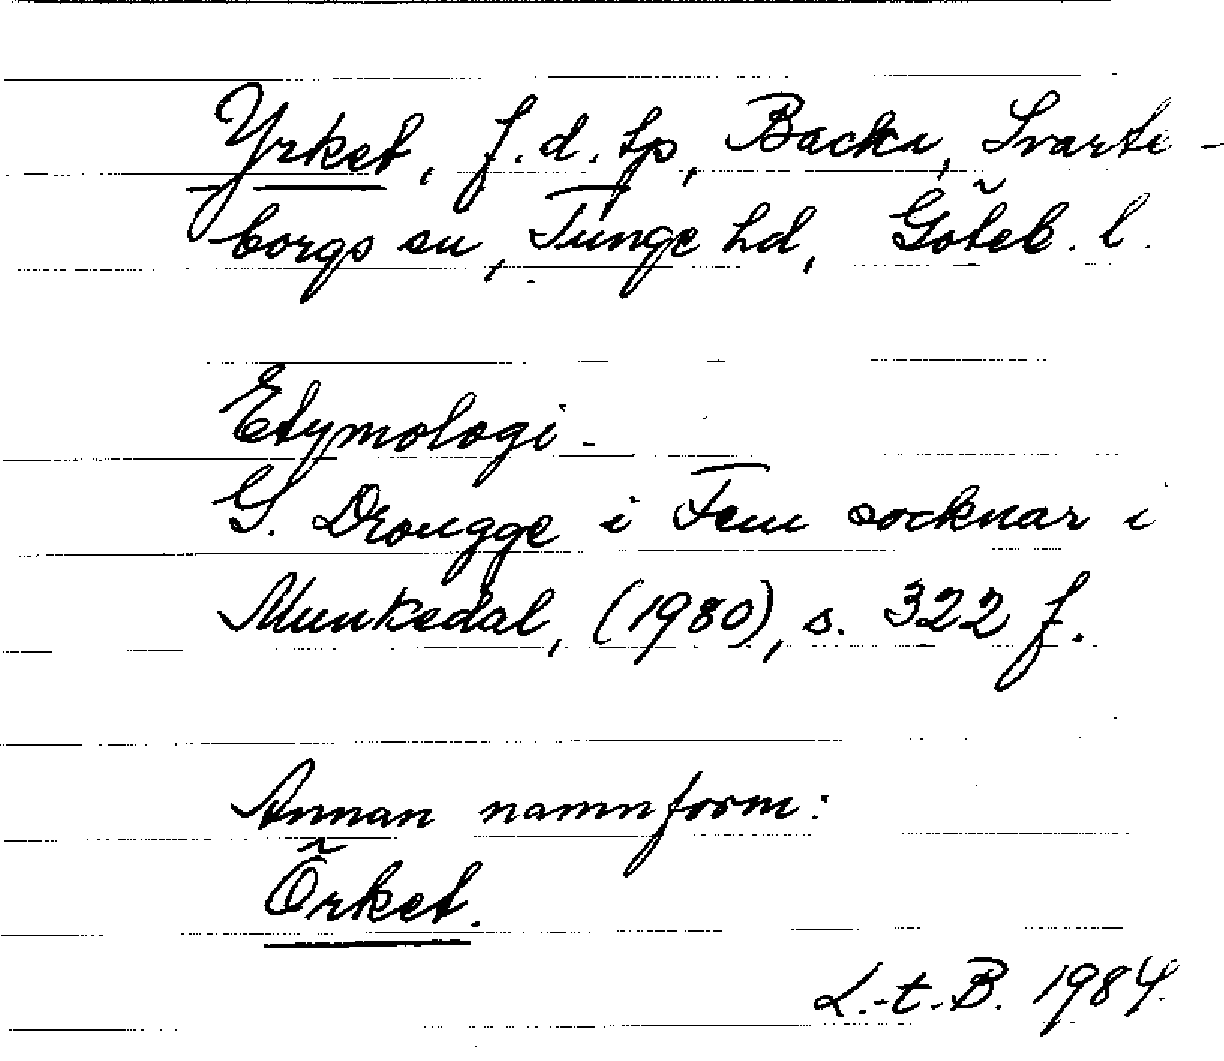 Yrket, f.d. tp, Backa, Svarte-
borgs sn, Tunge hd, Göteb. l.
Etymologi -
G. Drougge i Fem socknar i
Munkedal, (1980), s. 322 f.
Annan namnform:
Örket.
L.-t.B. 1984.